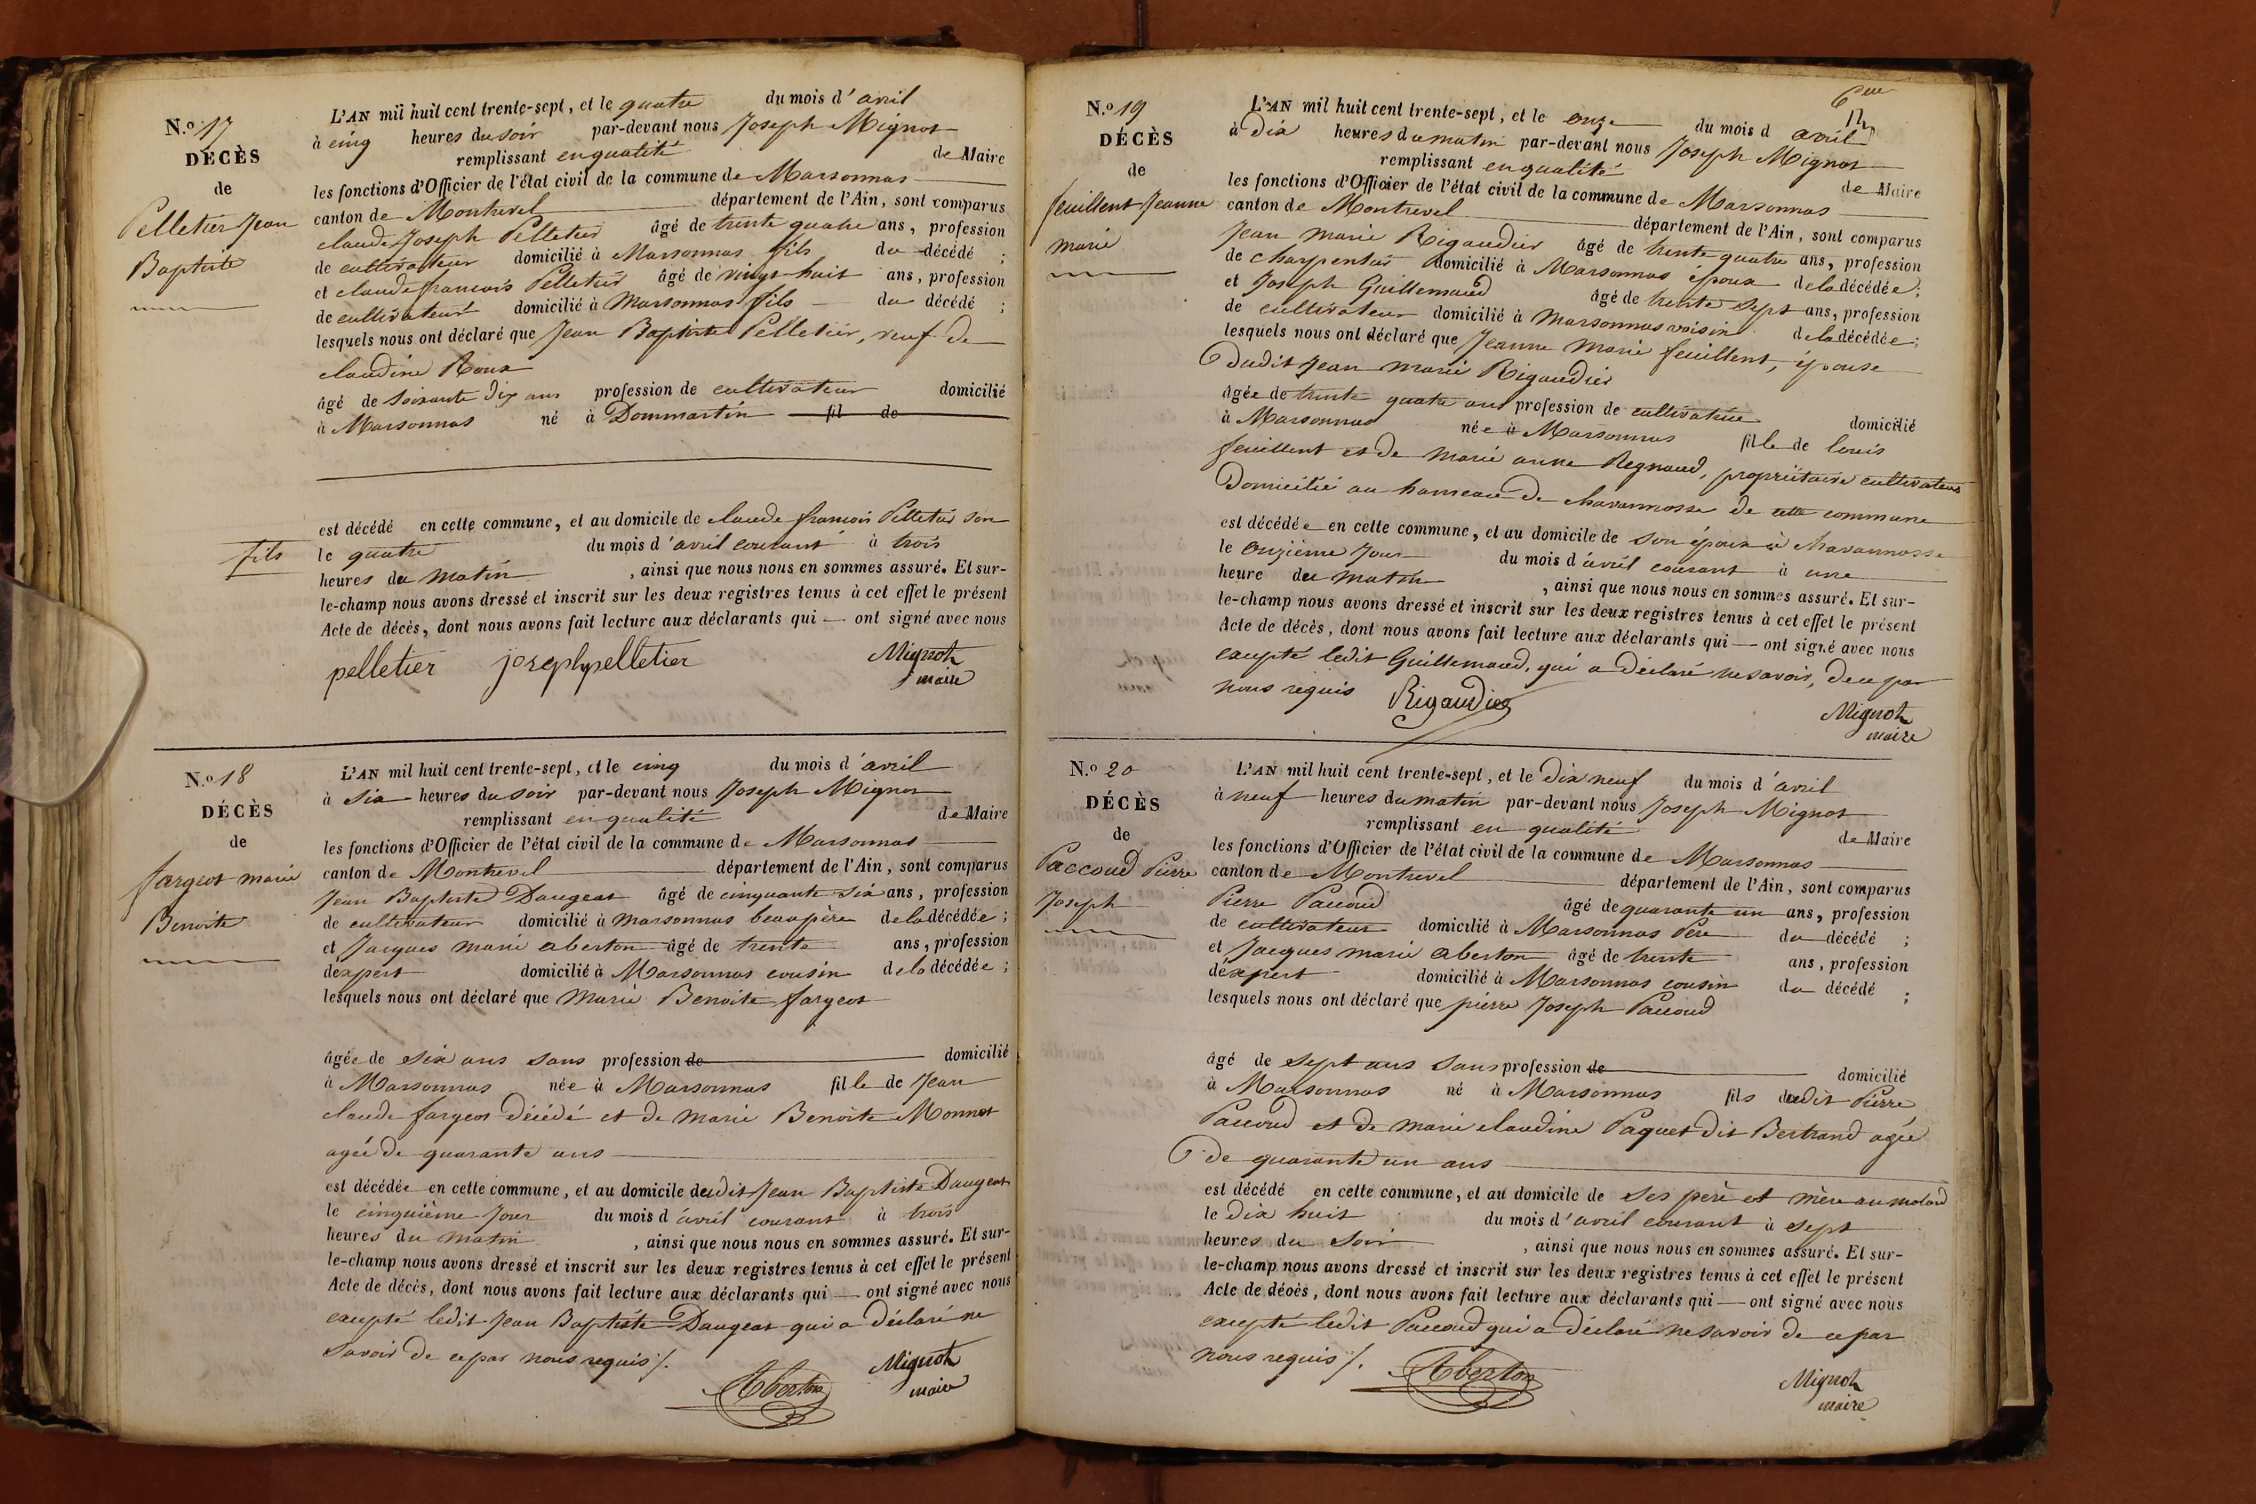 N.º 17
DÉCÈS
de
Pelletier Jean
Baptiste
L'AN mil huit cent trente-sept, et le quatre du mois d'avril
à cinq heures du soir par-devant nous Joseph Mignot
remplissant en qualité de Maire
les fonctions d'Officier de l'état civil de la commune de Marsonnas
canton de Montrevel département de l'Ain, sont comparus
claude Joseph Pelletier âgé de trente quatre ans, profession
de cultivateur domicilié à Marsonnas fils du décédé ;
et claude francois Pelletier âgé de vingt huit ans, profession
de cultivateur domicilié à Marsonnas fils du décédé ;
lesquels nous ont déclaré que Jean Baptiste Pelletier, veuf de
claudine Roux
âgé de soixante dix ans profession de cultivateur domicilié
à Marsonnas né à Dommartin fil de
est décédé en cette commune, et au domicile de claude francois Pelletier son
fils
le quatre du mois d'avril courant à trois
heures du matin , ainsi que nous nous en sommes assuré. Et sur-
le-champ nous avons dressé et inscrit sur les deux registres tenus à cet effet le présent
Acte de décès, dont nous avons fait lecture aux déclarants qui — ont signé avec nous
pelletier joseph pelletier Mignot
maire
N.º 18
DÉCÈS
de
fargeot marie
Benoite
L'AN mil huit cent trente-sept, et le cinq du mois d'avril
à six heures du soir par-devant nous Joseph Mignot
remplissant en qualité de Maire
les fonctions d'Officier de l'état civil de la commune de Marsonnas
canton de Montrevel département de l'Ain, sont comparus
Jean Baptiste Daugeat âgé de cinquante six ans, profession
de cultivateur domicilié à marsonnas beaupère de la décédée ;
et Jacques marie aberton âgé de trente ans, profession
d'expert domicilié à Marsonnas cousin de la décédée ;
lesquels nous ont déclaré que Marie Benoite fargeot
âgée de six ans sans profession de domicilié
à Marsonnas née à Marsonnas fille de Jean
claude fargeot décédé et de marie Benoite Monnet
agée de quarante ans
est décédée en cette commune, et au domicile dudit Jean Baptiste Daugeat
le cinquième jour du mois d'avril courant à trois
heures du matin , ainsi que nous nous en sommes assuré. Et sur-
le-champ nous avons dressé et inscrit sur les deux registres tenus à cet effet le présent
Acte de décès, dont nous avons fait lecture aux déclarants qui — ont signé avec nous
excepté ledit Jean Baptiste Daugeat qui a déclaré ne
savoir de ce par nous requis /.
Aberton Mignot
maire
N.º 19
DÉCÈS
de
feuillent Jeanne
marie
L'AN mil huit cent trente-sept, et le onze du mois d avril
à dix heures du matin par-devant nous Joseph Mignot
remplissant en qualité de Maire
les fonctions d'Officier de l'état civil de la commune de Marsonnas
canton de Montrevel département de l'Ain, sont comparus
Jean marie Rigaudier âgé de trente quatre ans, profession
de charpentier domicilié à Marsonnas époux de la décédée ;
et Joseph Guillemaud âgé de trente sept ans, profession
de cultivateur domicilié à marsonnas voisin de la décédée ;
lesquels nous ont déclaré que Jeanne Marie feuillent, épouse
dudit Jean marie Rigaudier
âgée de trente quatre ans profession de cultivatrice domicilié
à Marsonnas née à Marsonnas fille de louis
feuillent et de marie anne Regnaud, propriétaire cultivateurs
domicilié au hameau de chavannosse de cette commune
est décédée en cette commune, et au domicile de son époux à chavannosse
le onzième jour du mois d'avril courant à une
heure du matin , ainsi que nous nous en sommes assuré. Et sur-
le-champ nous avons dressé et inscrit sur les deux registres tenus à cet effet le présent
Acte de décès, dont nous avons fait lecture aux déclarants qui — ont signé avec nous
excepté ledit Guillemaud, qui a déclaré ne savoir, de ce par
nous requis Rigaudier
Mignot
maire
N.º 20
DÉCÈS
de
Paccoud Pierre
Joseph
L'AN mil huit cent trente-sept, et le dix neuf du mois d'avril
à neuf heures du matin par-devant nous Joseph Mignot
remplissant en qualité de Maire
les fonctions d'Officier de l'état civil de la commune de Marsonnas
canton de Montrevel département de l'Ain, sont comparus
Pierre Paccoud âgé de quarante un ans, profession
de cultivateur domicilié à Marsonnas Père du décédé ;
et Jacques marie aberton âgé de trente ans, profession
d'expert domicilié à Marsonnas cousin du décédé ;
lesquels nous ont déclaré que pierre Joseph Paccoud
âgé de sept ans sans profession de domicilié
à Marsonnas né à Marsonnas fils dudit Pierre
Paccoud et de marie claudine Paquet dit Bertrand agée
de quarante un ans
est décédé en cette commune, et au domicile de ses père et mère au molard
le dix huit du mois d'avril courant à sept
heures du soir , ainsi que nous nous en sommes assuré. Et sur-
le-champ nous avons dressé et inscrit sur les deux registres tenus à cet effet le présent
Acte de décès, dont nous avons fait lecture aux déclarants qui — ont signé avec nous
excepté ledit Paccoud qui a déclaré ne savoir de ce par
nous requis /. Aberton
Mignot
maire